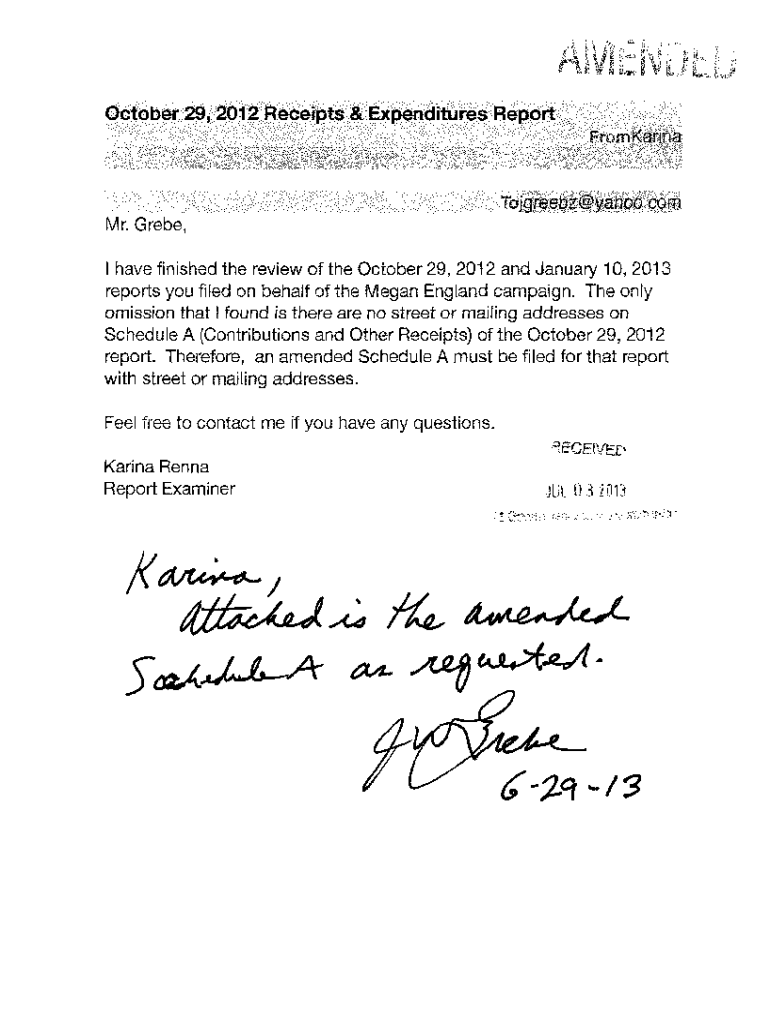 AMENDED
October 29, 2012 Receipts & Expenditures Report
From Karina
To jgreebz@yahoo.com
Mr. Grebe,
I have finished the review of the October 29, 2012 and January 10, 2013
reports you filed on behalf of the Megan England campaign.  The only
omission that I found is there are no street or mailing addresses on
Schedule A (Contributions and Other Receipts) of the October 29, 2012
report.  Therefore,  an amended Schedule A must be filed for that report
with street or mailing addresses.
Feel free to contact me if you have any questions.
RECEIVED
Karina Renna
Report Examiner
JUL 03 2013
Karina,
Attached is the amended
Schedule A as requested.
JW Grebe
6-29-13